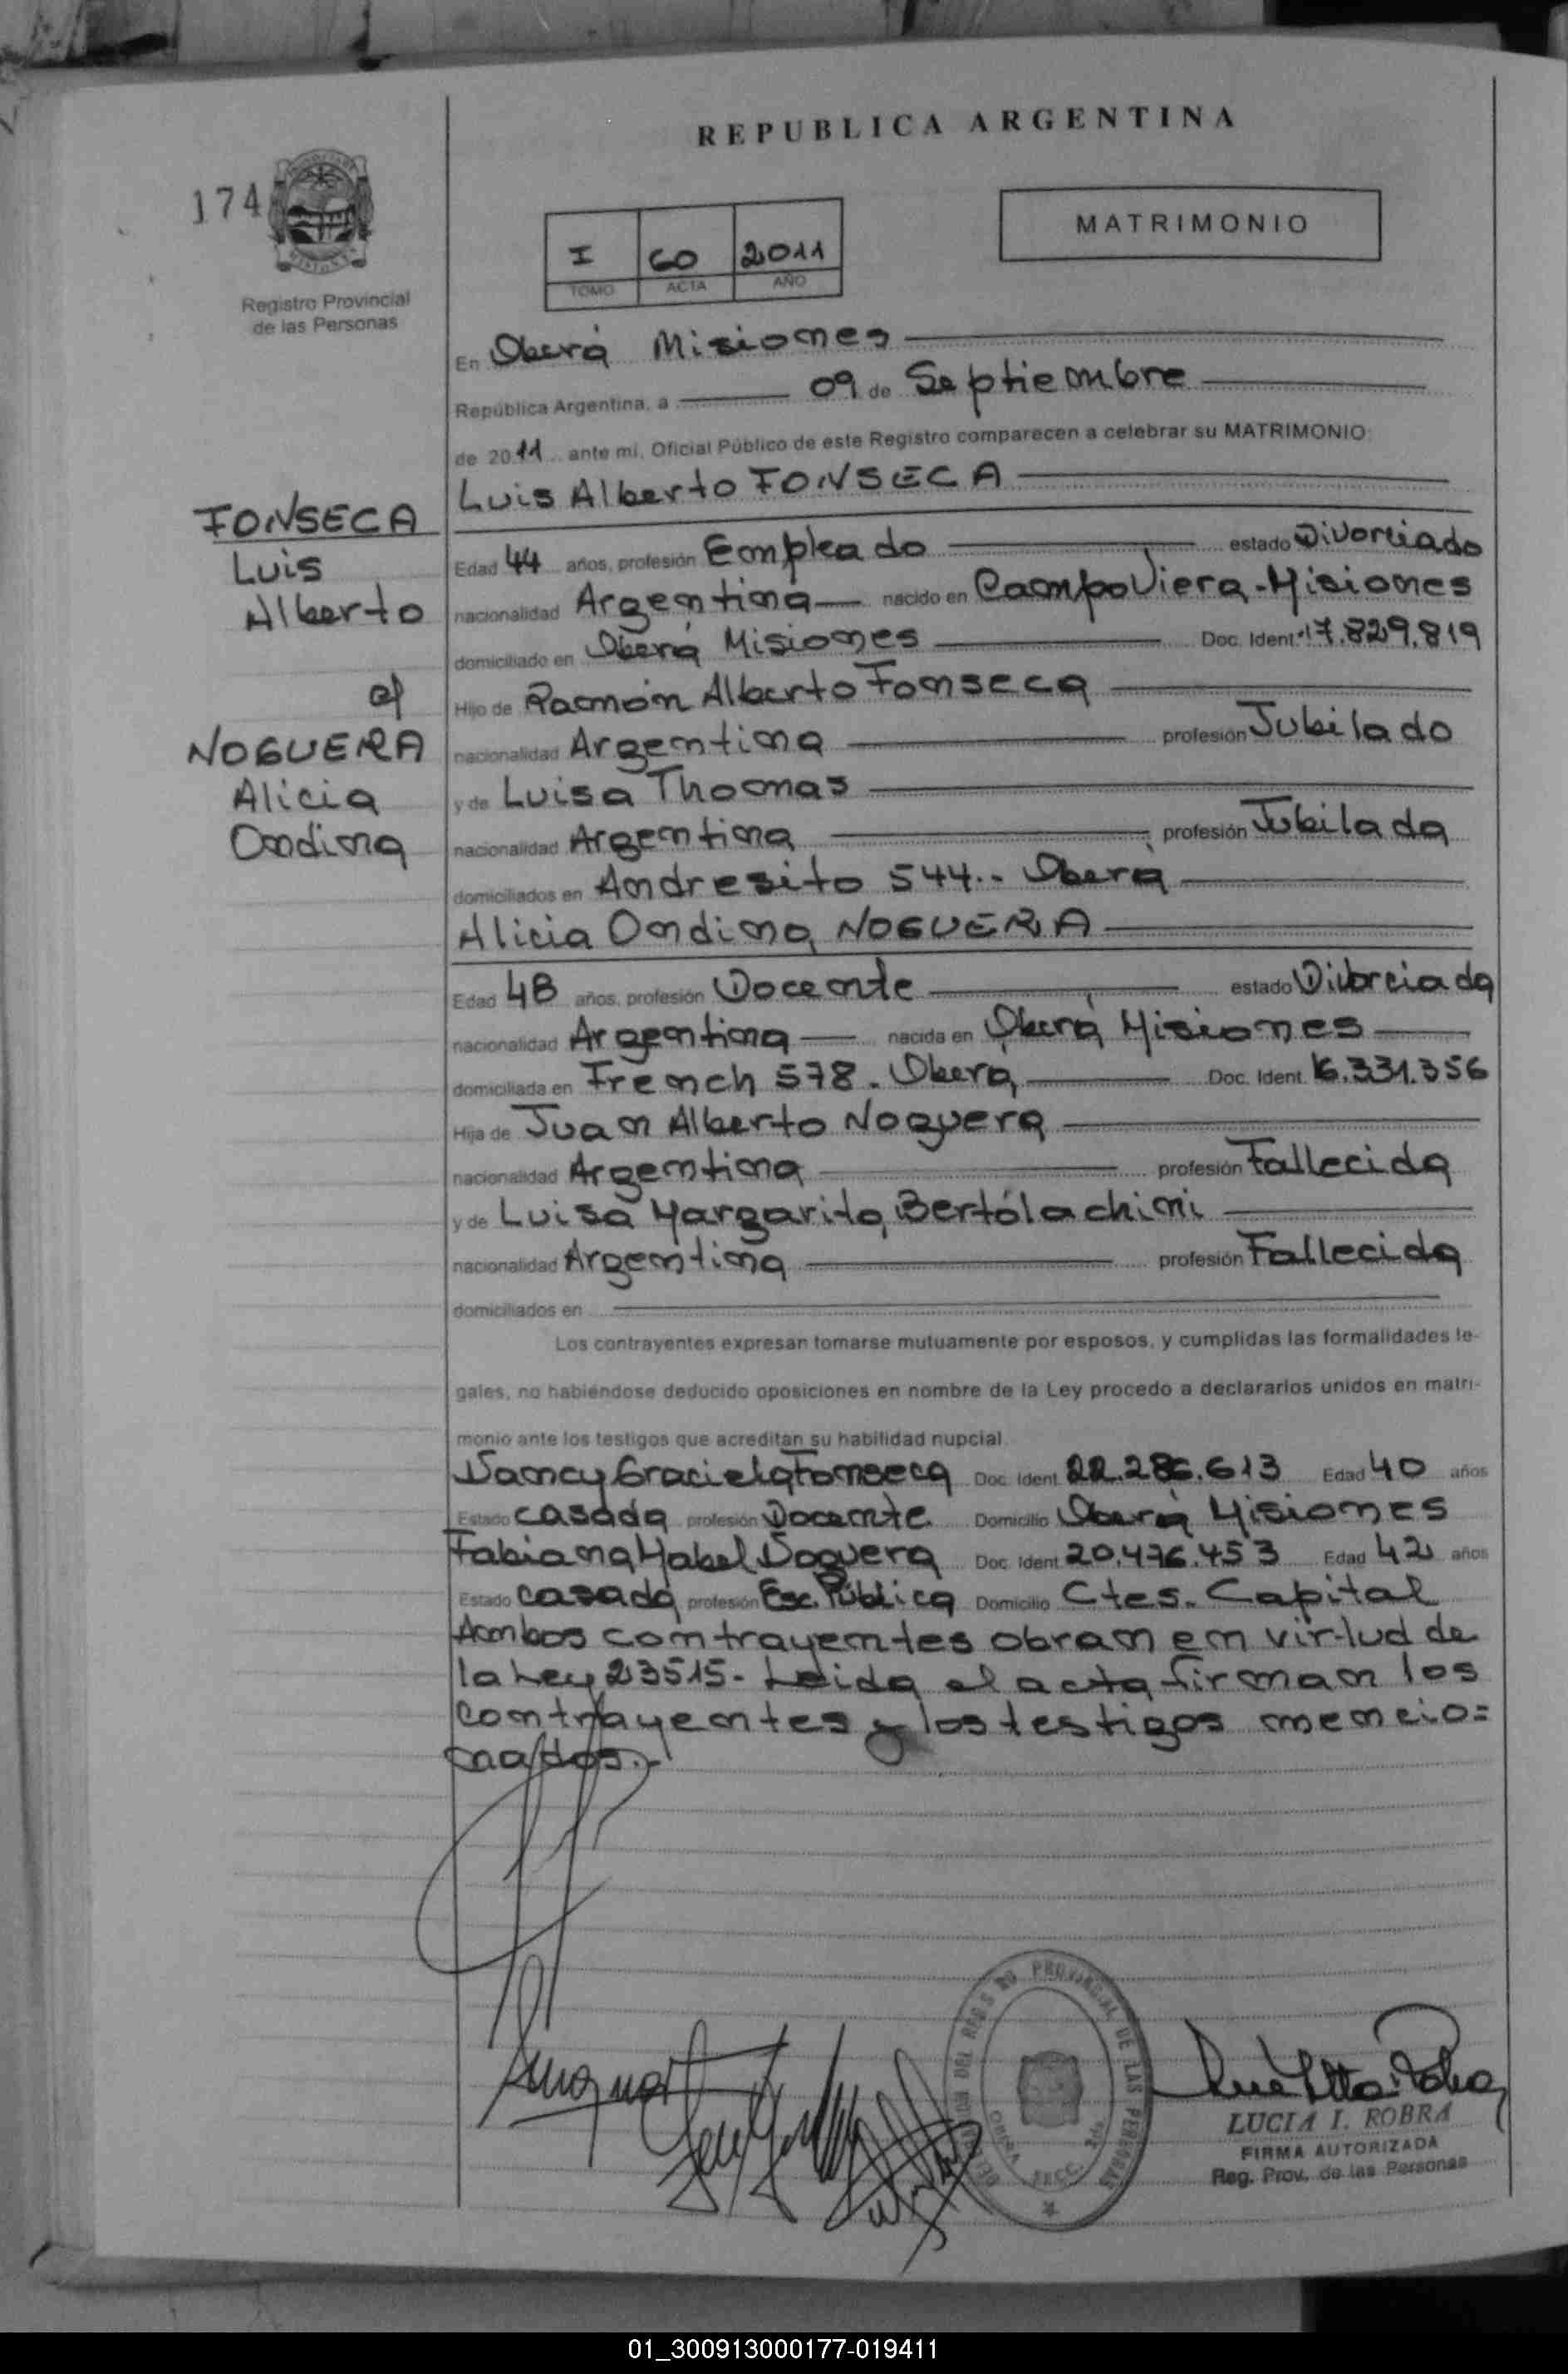 REPUBLICA ARGENTINA
174
MATRIMONIO
I 60 2011
TOMO ACTA AÑO
Registro Provincial
de las Personas
En Oberá Misiones
República Argentina, a 09 de Septiembre
de 2011 ante mi, Oficial Público de este Registro comparecen a celebrar su MATRIMONIO:
Luis Alberto FONSECA
FONSECA
Luis
Alberto
c/
NOGUERA
Alicia
Ondina
Edad 44 años, profesión Empleado estado Divorciado
nacionalidad Argentina nacido en Campo Viera-Misiones
domiciliado en Oberá Misiones Doc. Ident. 17.829.819
Hijo de Ramón Alberto Fonseca
nacionalidad Argentina profesión Jubilado
y de Luisa Thomas
nacionalidad Argentina profesión Jubilada
domiciliados en Andresito 544.- Oberá
Alicia Ondina NOGUERA
Edad 48 años, profesión Docente estado Divorciada
nacionalidad Argentina nacida en Oberá Misiones
domiciliada en French 578. Oberá Doc. Ident. 16.331.356
Hija de Juan Alberto Noguera
nacionalidad Argentina profesión Fallecida
y de Luisa Margarita Bertólachini
nacionalidad Argentina profesión Fallecida
domiciliados en
Los contrayentes expresan tomarse mutuamente por esposos, y cumplidas las formalidades le-
gales, no habiéndose deducido oposiciones en nombre de la Ley procedo a declararlos unidos en matri-
monio ante los testigos que acreditan su habilidad nupcial.
Nancy Graciela Fonseca Doc. Ident. 22.286.613 Edad 40 años
Estado casada profesión Docente Domicilio Oberá Misiones
Fabiana Mabel Noguera Doc. Ident. 20.476.453 Edad 42 años
Estado casada profesión Esc. Pública Domicilio Ctes. Capital
Ambos contrayentes obran en virtud de
la Ley 23515- Leida el acta firman los
contrayentes y los testigos mencio=
nados.-
REGISTRO PROVINCIAL DE LAS PERSONAS
LUCIA I. ROBRA
FIRMA AUTORIZADA
Reg. Prov. de las Personas
01_300913000177-019411